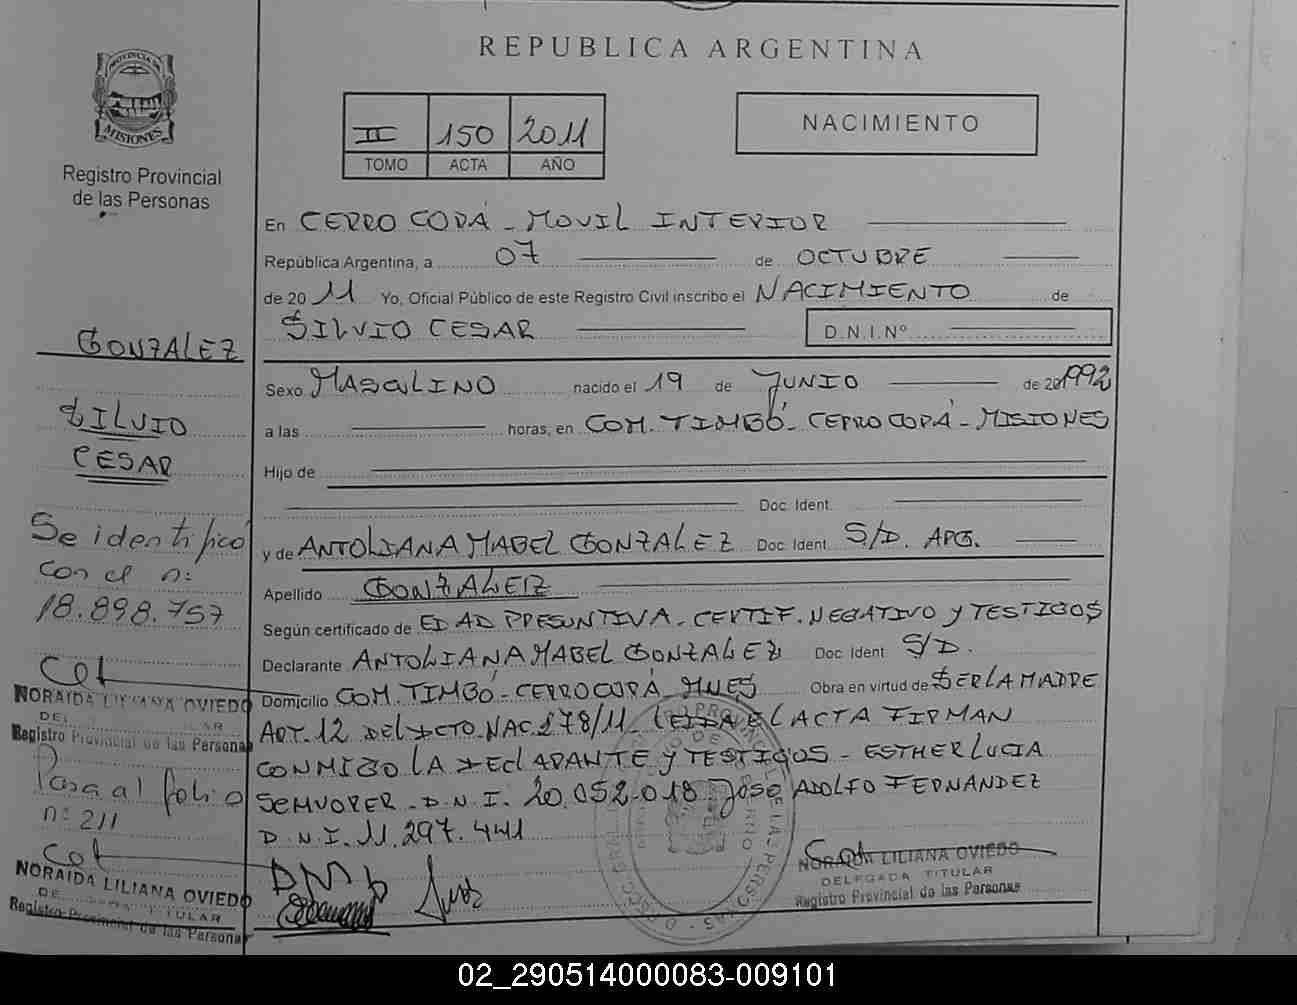 REPUBLICA ARGENTINA
PROVINCIA DE
MISIONES
Registro Provincial
de las Personas
II 150 2011
TOMO ACTA AÑO
NACIMIENTO
En CERRO CORÁ - MOVIL INTERIOR
República Argentina, a 07 de OCTUBRE
de 20 11 Yo, Oficial Público de este Registro Civil inscribo el NACIMIENTO de
SILVIO CESAR D.N.I.Nº
Sexo MASCULINO nacido el 19 de JUNIO de 201992
a las horas, en COM. TIMBÓ - CERRO CORÁ - MISIONES
Hijo de
Doc. Ident.
y de ANTOLIANA MABEL GONZALEZ Doc. Ident. S/D. ARG.
Apellido GONZALEZ
Según certificado de EDAD PRESUNTIVA - CERTIF. NEGATIVO Y TESTIGOS
Declarante ANTOLIANA MABEL GONZALEZ Doc. Ident S/D.
Domicilio COM. TIMBÓ - CERRO CORÁ - MNES Obra en virtud de SER LA MADRE
ART. 12 DEL DCTO. NAC. 278/11. LEIDA EL ACTA FIRMAN
CONMIGO LA DECLARANTE Y TESTIGOS - ESTHER LUCIA
D.N.I. 20.052.018 Jose ADOLFO FERNANDEZ
D.N.I. 11.297.441
NORAIDA LILIANA OVIEDO
DELEGADA TITULAR
Registro Provincial de las Personas
GONZALEZ
SILVIO
CESAR
Se identificó
con el n:
18.898.757
NORAIDA LILIANA OVIEDO
Registro Provincial de las Personas
Pasa al folio
n: 211
NORAIDA LILIANA OVIEDO
TITULAR
Registro Provincial de las Personas
02_290514000083-009101